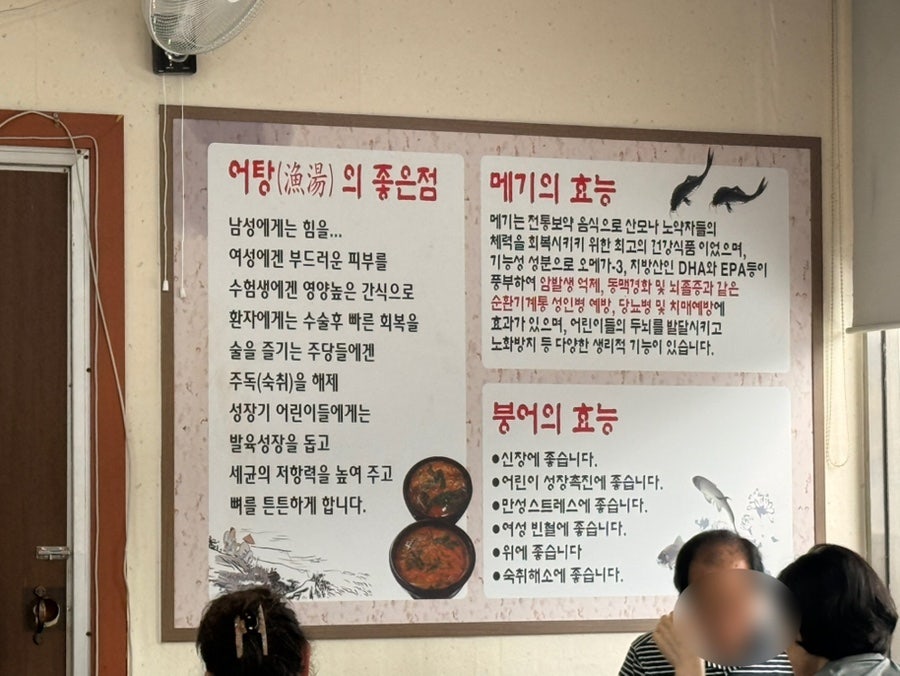 어탕(漁湯)의 좋은점
남성에게는 힘을...
여성에겐 부드러운 피부를
수험생에겐 영양높은 간식으로
환자에게는 수술후 빠른 회복을
술을 즐기는 주당들에겐
주독(숙취)을 해제
성장기 어린이들에게는
발육성장을 돕고
세균의 저항력을 높여 주고
뼈를 튼튼하게 합니다.
메기의 효능
메기는 전통보약 음식으로 산모나 노약자들의
체력을 회복시키키 위한 최고의 건강식품 이었으며,
기능성 성분으로 오메가-3, 지방산인 DHA와 EPA등이
풍부하여 암발생 억제, 동맥경화 및 뇌졸증과 같은
순환기계통 성인병 예방, 당뇨병 및 치매예방에
효과가 있으며, 어린이들의 두뇌를 발달시키고
노화방지 등 다양한 생리적 기능이 있습니다.
붕어의 효능
●신장에 좋습니다.
●어린이 성장촉진에 좋습니다.
●만성스트레스에 좋습니다.
●여성 빈혈에 좋습니다.
●위에 좋습니다
●숙취해소에 좋습니다.